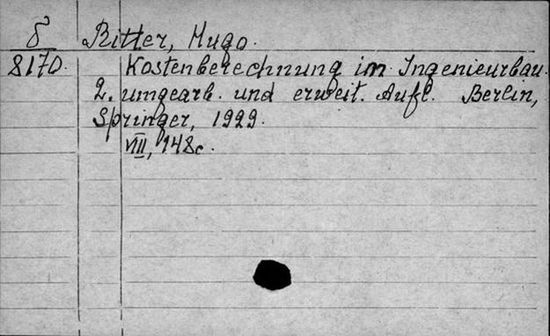 δ Ritter, Hugo.
8170. Kostenberechnung im Ingenieurbau.
2. umgearb. und erweit. Aufl. Berlin,
Springer, 1929.
VIII, 148 c.